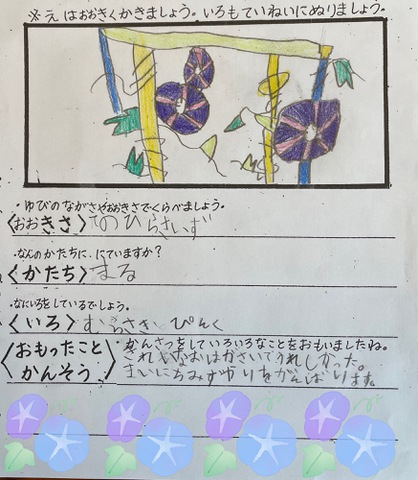 ※えはおおきくかきましょう。いろもていねいにぬりましょう。
・ゆびのながさやおおきさでくらべましょう。
〈おおきさ〉てのひらさいず
・なんのかたちに、にていますか?
〈かたち〉まる
・なにいろをしているでしょう。
〈いろ〉むらさきとぴんく
〈おもったこと かんそう〉
・かんさつをしていろいろなことをおもいましたね。
きれいなおはなさいてうれしかった。
まいにちみずやりをがんばります。